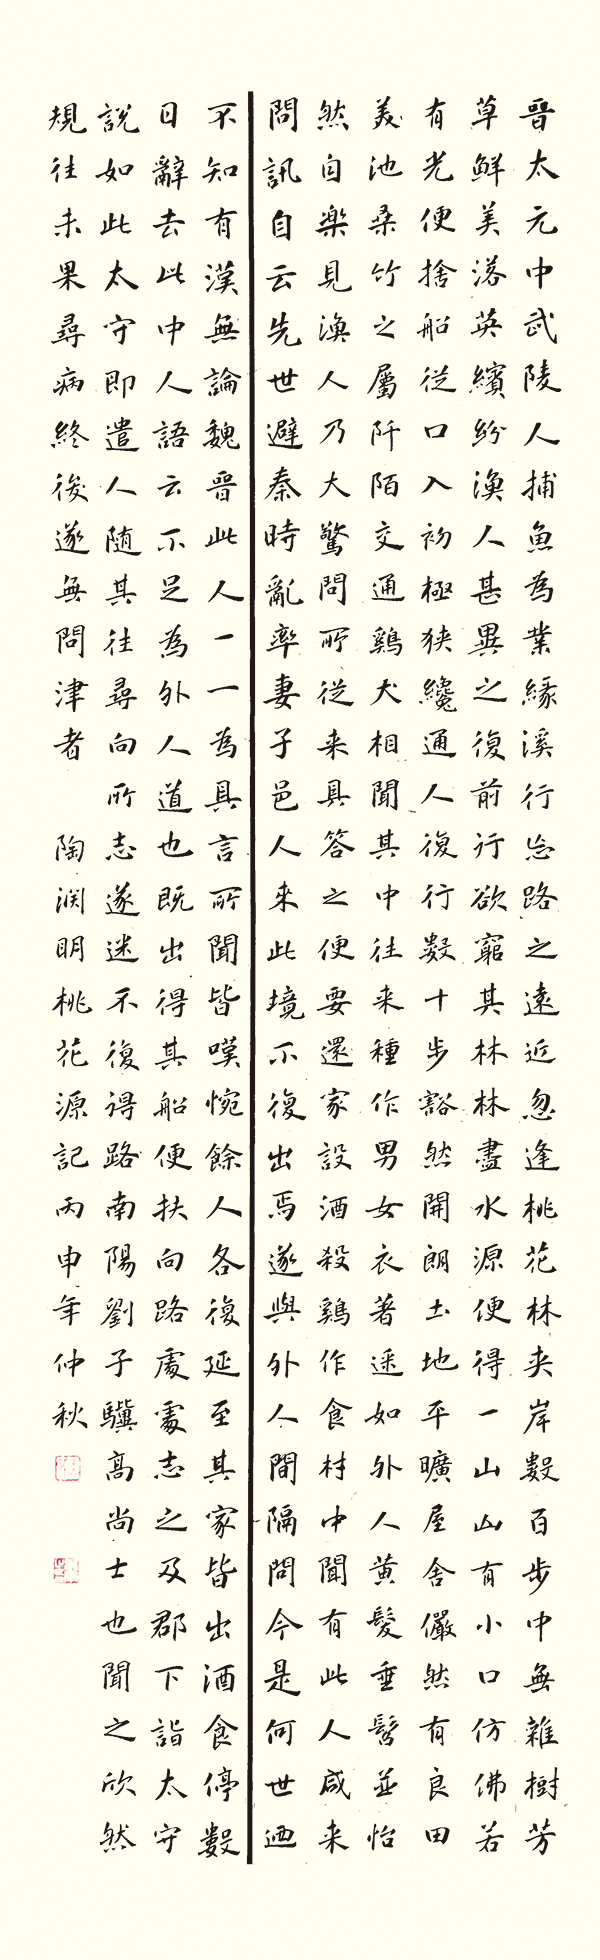 晉太元中武陵人捕魚為業緣溪行忘路之遠近忽逢桃花林夾岸數百步中無雜樹芳
草鮮美落英繽紛漁人甚異之復前行欲窮其林林盡水源便得一山山有小口仿佛若
有光便捨船從口入初極狹纔通人復行數十步豁然開朗土地平曠屋舍儼然有良田
美池桑竹之屬阡陌交通鷄犬相聞其中往来種作男女衣著悉如外人黄髮垂髫並怡
然自樂見漁人乃大驚問所從来具答之便要還家設酒殺鷄作食村中聞有此人咸来
問訊自云先世避秦時亂率妻子邑人来此境不復出焉遂與外人間隔問今是何世迺
不知有漢無論魏晉此人一一為具言所聞皆嘆惋餘人各復延至其家皆出酒食停數
日辭去此中人語云不足為外人道也既出得其船便扶向路處處志之及郡下詣太守
說如此太守即遣人隨其往尋向所志遂迷不復得路南陽劉子驥高尚士也聞之欣然
規往未果尋病終後遂無問津者 陶渊明桃花源記丙申年仲秋